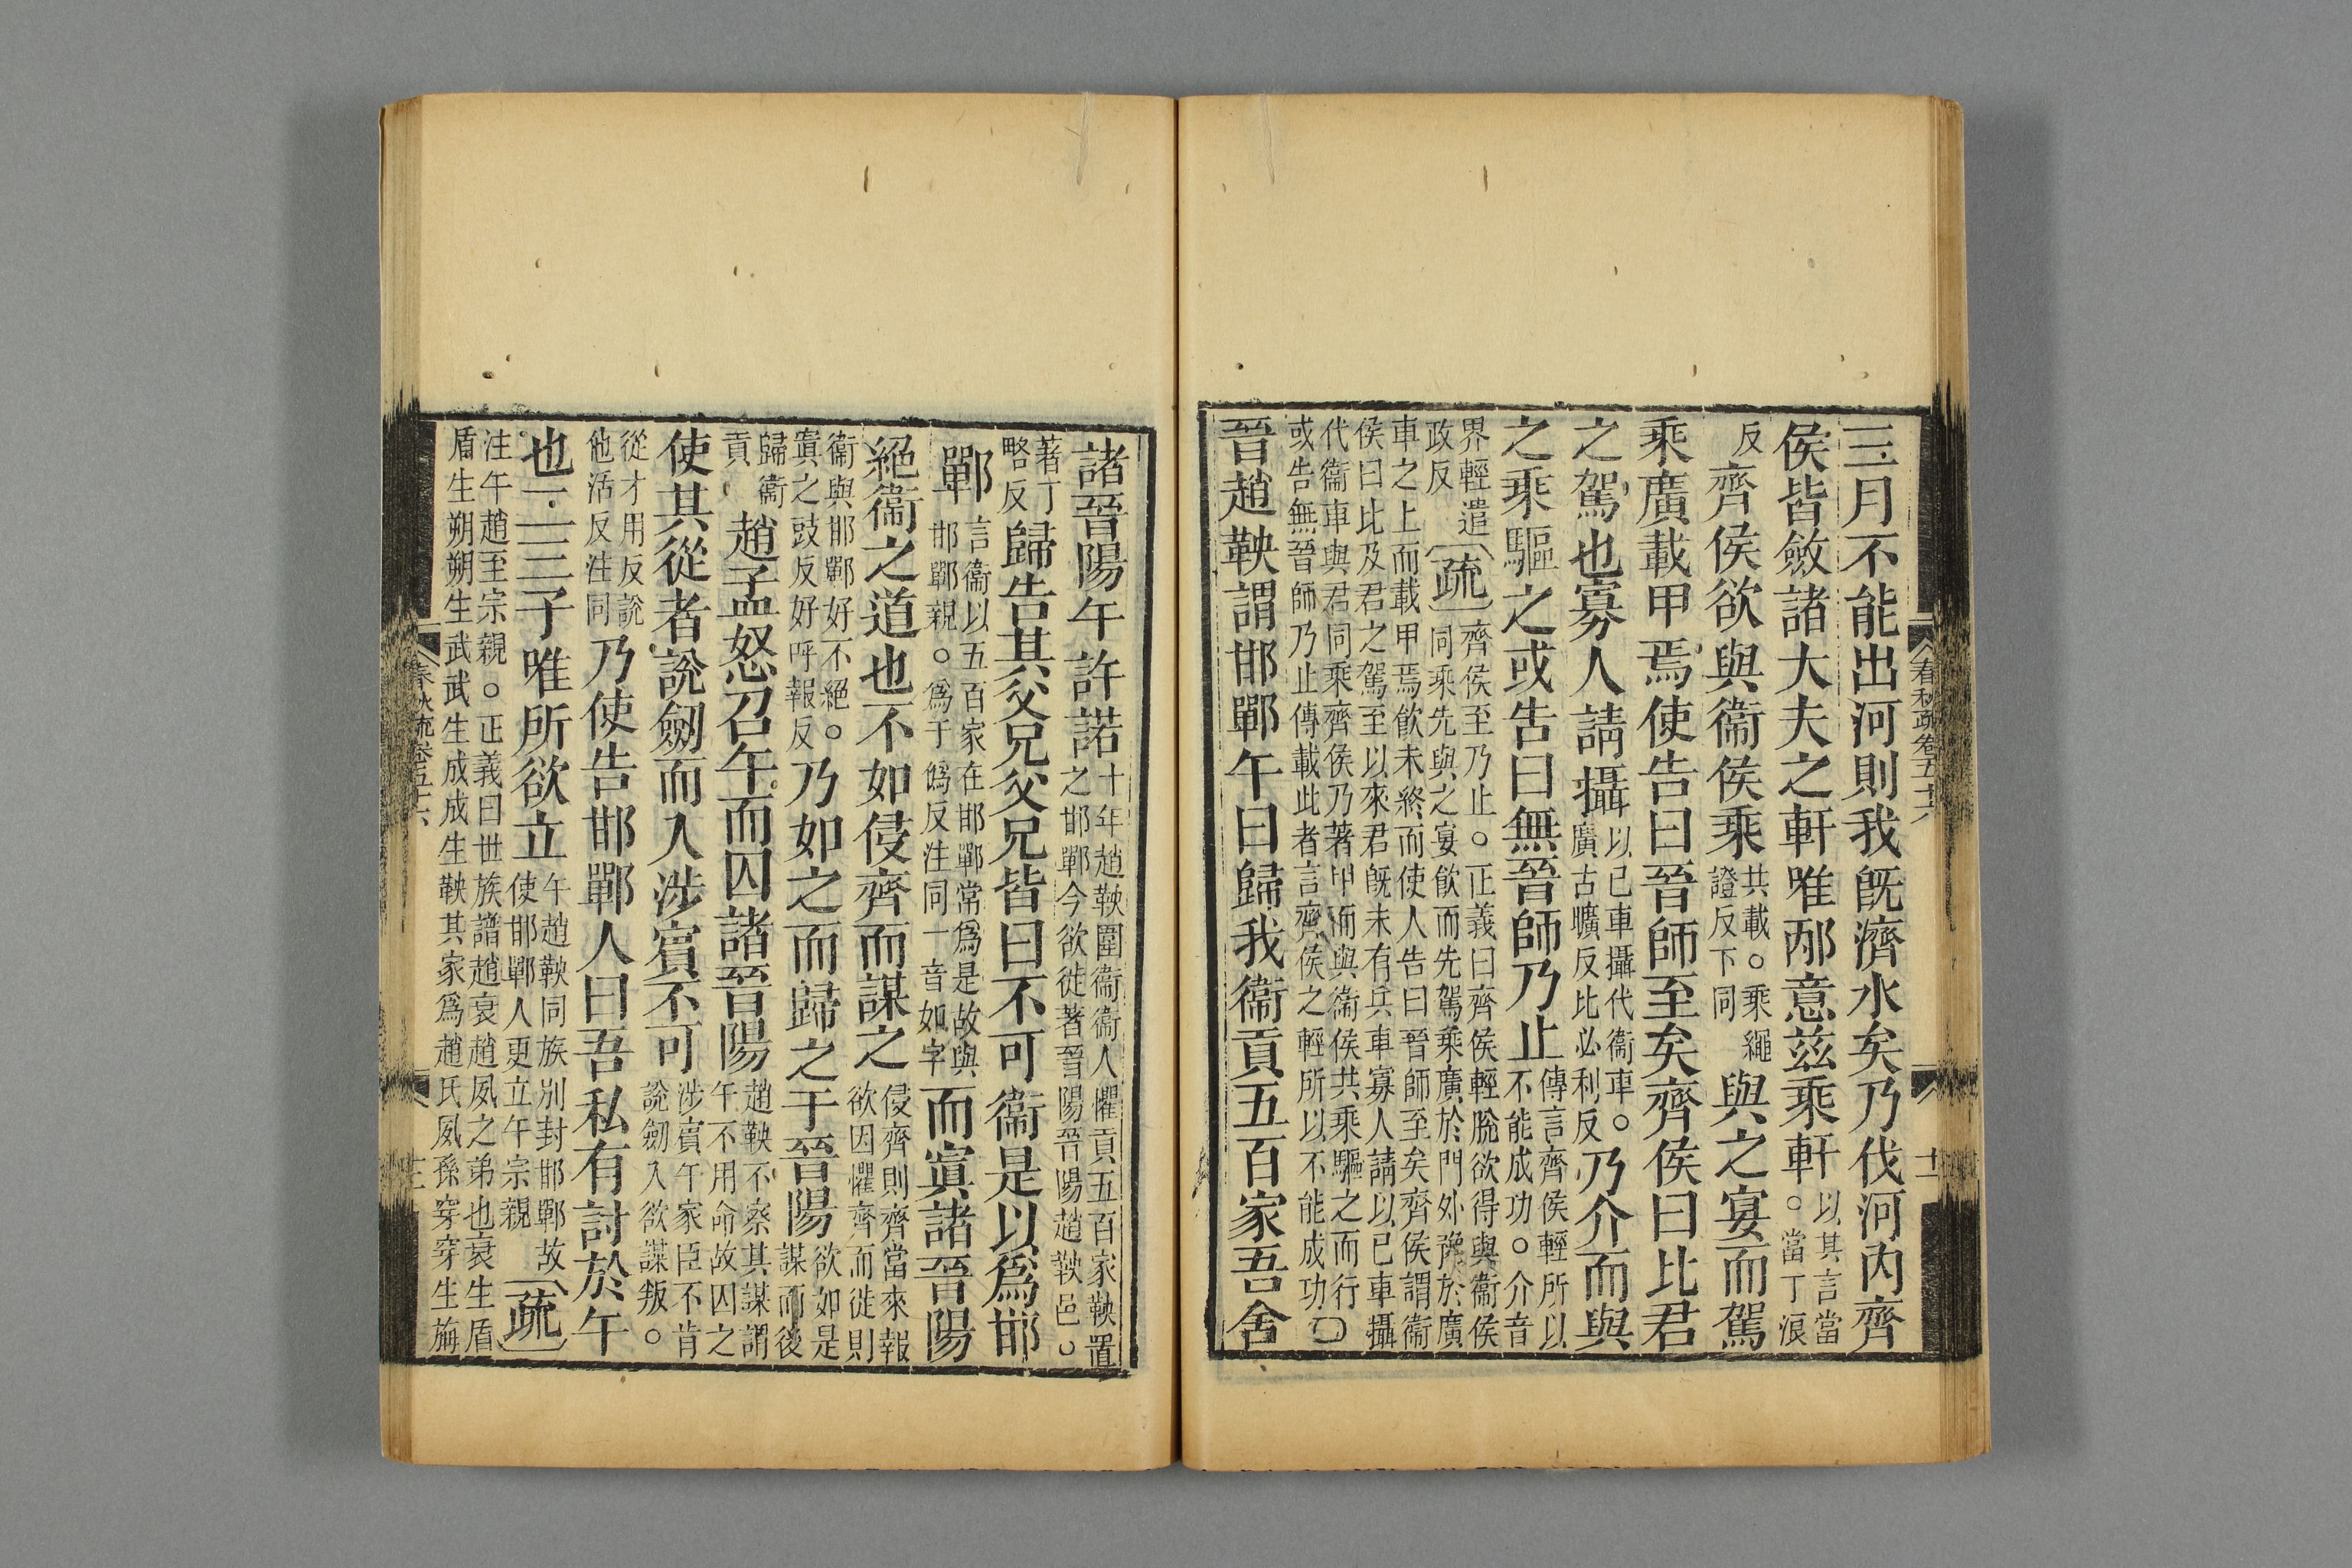 三月不能出河則我既濟水矣乃伐河内齊
侯皆斂諸大夫之軒唯邴意茲乘軒以其言當
。當丁浪
反齊侯欲與衞侯乘共載。乘繩
證反下同與之宴而駕
乘廣載甲焉使告曰晉師至矣齊侯曰比君
之駕也寡人請攝以已車攝代衞車。
廣古曠反比必利反乃介而與
之乘驅之或告曰無晉師乃止傳言齊侯輕所以
不能成功。介音
界輕遣
政反疏齊侯至乃止。正義曰齊侯輕脫欲得與衞侯
同乘先與之宴飲而先駕乘廣於門外豫於廣
車之上而載甲焉飲未終而使人告曰晉師至矣齊侯謂衞
侯曰比及君之駕至以來君既未有兵車寡人請以已車攝
代衞車與君同乘齊侯乃著甲而與衞侯共乘驅之而行
或告無晉師乃止傳載此者言齊侯之輕所以不能成功
晉趙鞅謂邯鄲午曰歸我衞貢五百家吾舍
春秋疏卷五十六
十二
諸晉陽午許諾十年趙鞅圍衞衞人懼貢五百家鞅置
之邯鄲今欲徙著晉陽晉陽趙鞅邑。
著丁
略反歸告其父兄父兄皆曰不可衞是以爲邯
鄲言衞以五百家在邯鄲常爲是故與
邯鄲親。爲于僞反注同一音如字而寘諸晉陽
絕衞之道也不如侵齊而謀之侵齊則齊當來報
欲因懼齊而徙則
衞與邯鄲好不絕。
寘之豉反好呼報反乃如之而歸之于晉陽欲如是
謀而後
歸衞
貢趙孟怒召午而囚諸晉陽趙鞅不察其謀謂
午不用命故囚之
使其從者說劒而入涉賓不可涉賓午家臣不肯
說劒入欲謀叛。
從才用反說
他活反注同乃使告邯鄲人曰吾私有討於午
也二三子唯所欲立午趙鞅同族別封邯鄲故
使邯鄲人更立午宗親疏
注午趙至宗親。正義曰世族譜趙衰趙夙之弟也衰生盾
盾生朔朔生武武生成成生鞅其家爲趙氏夙孫穿穿生旃
春秋疏卷五十六